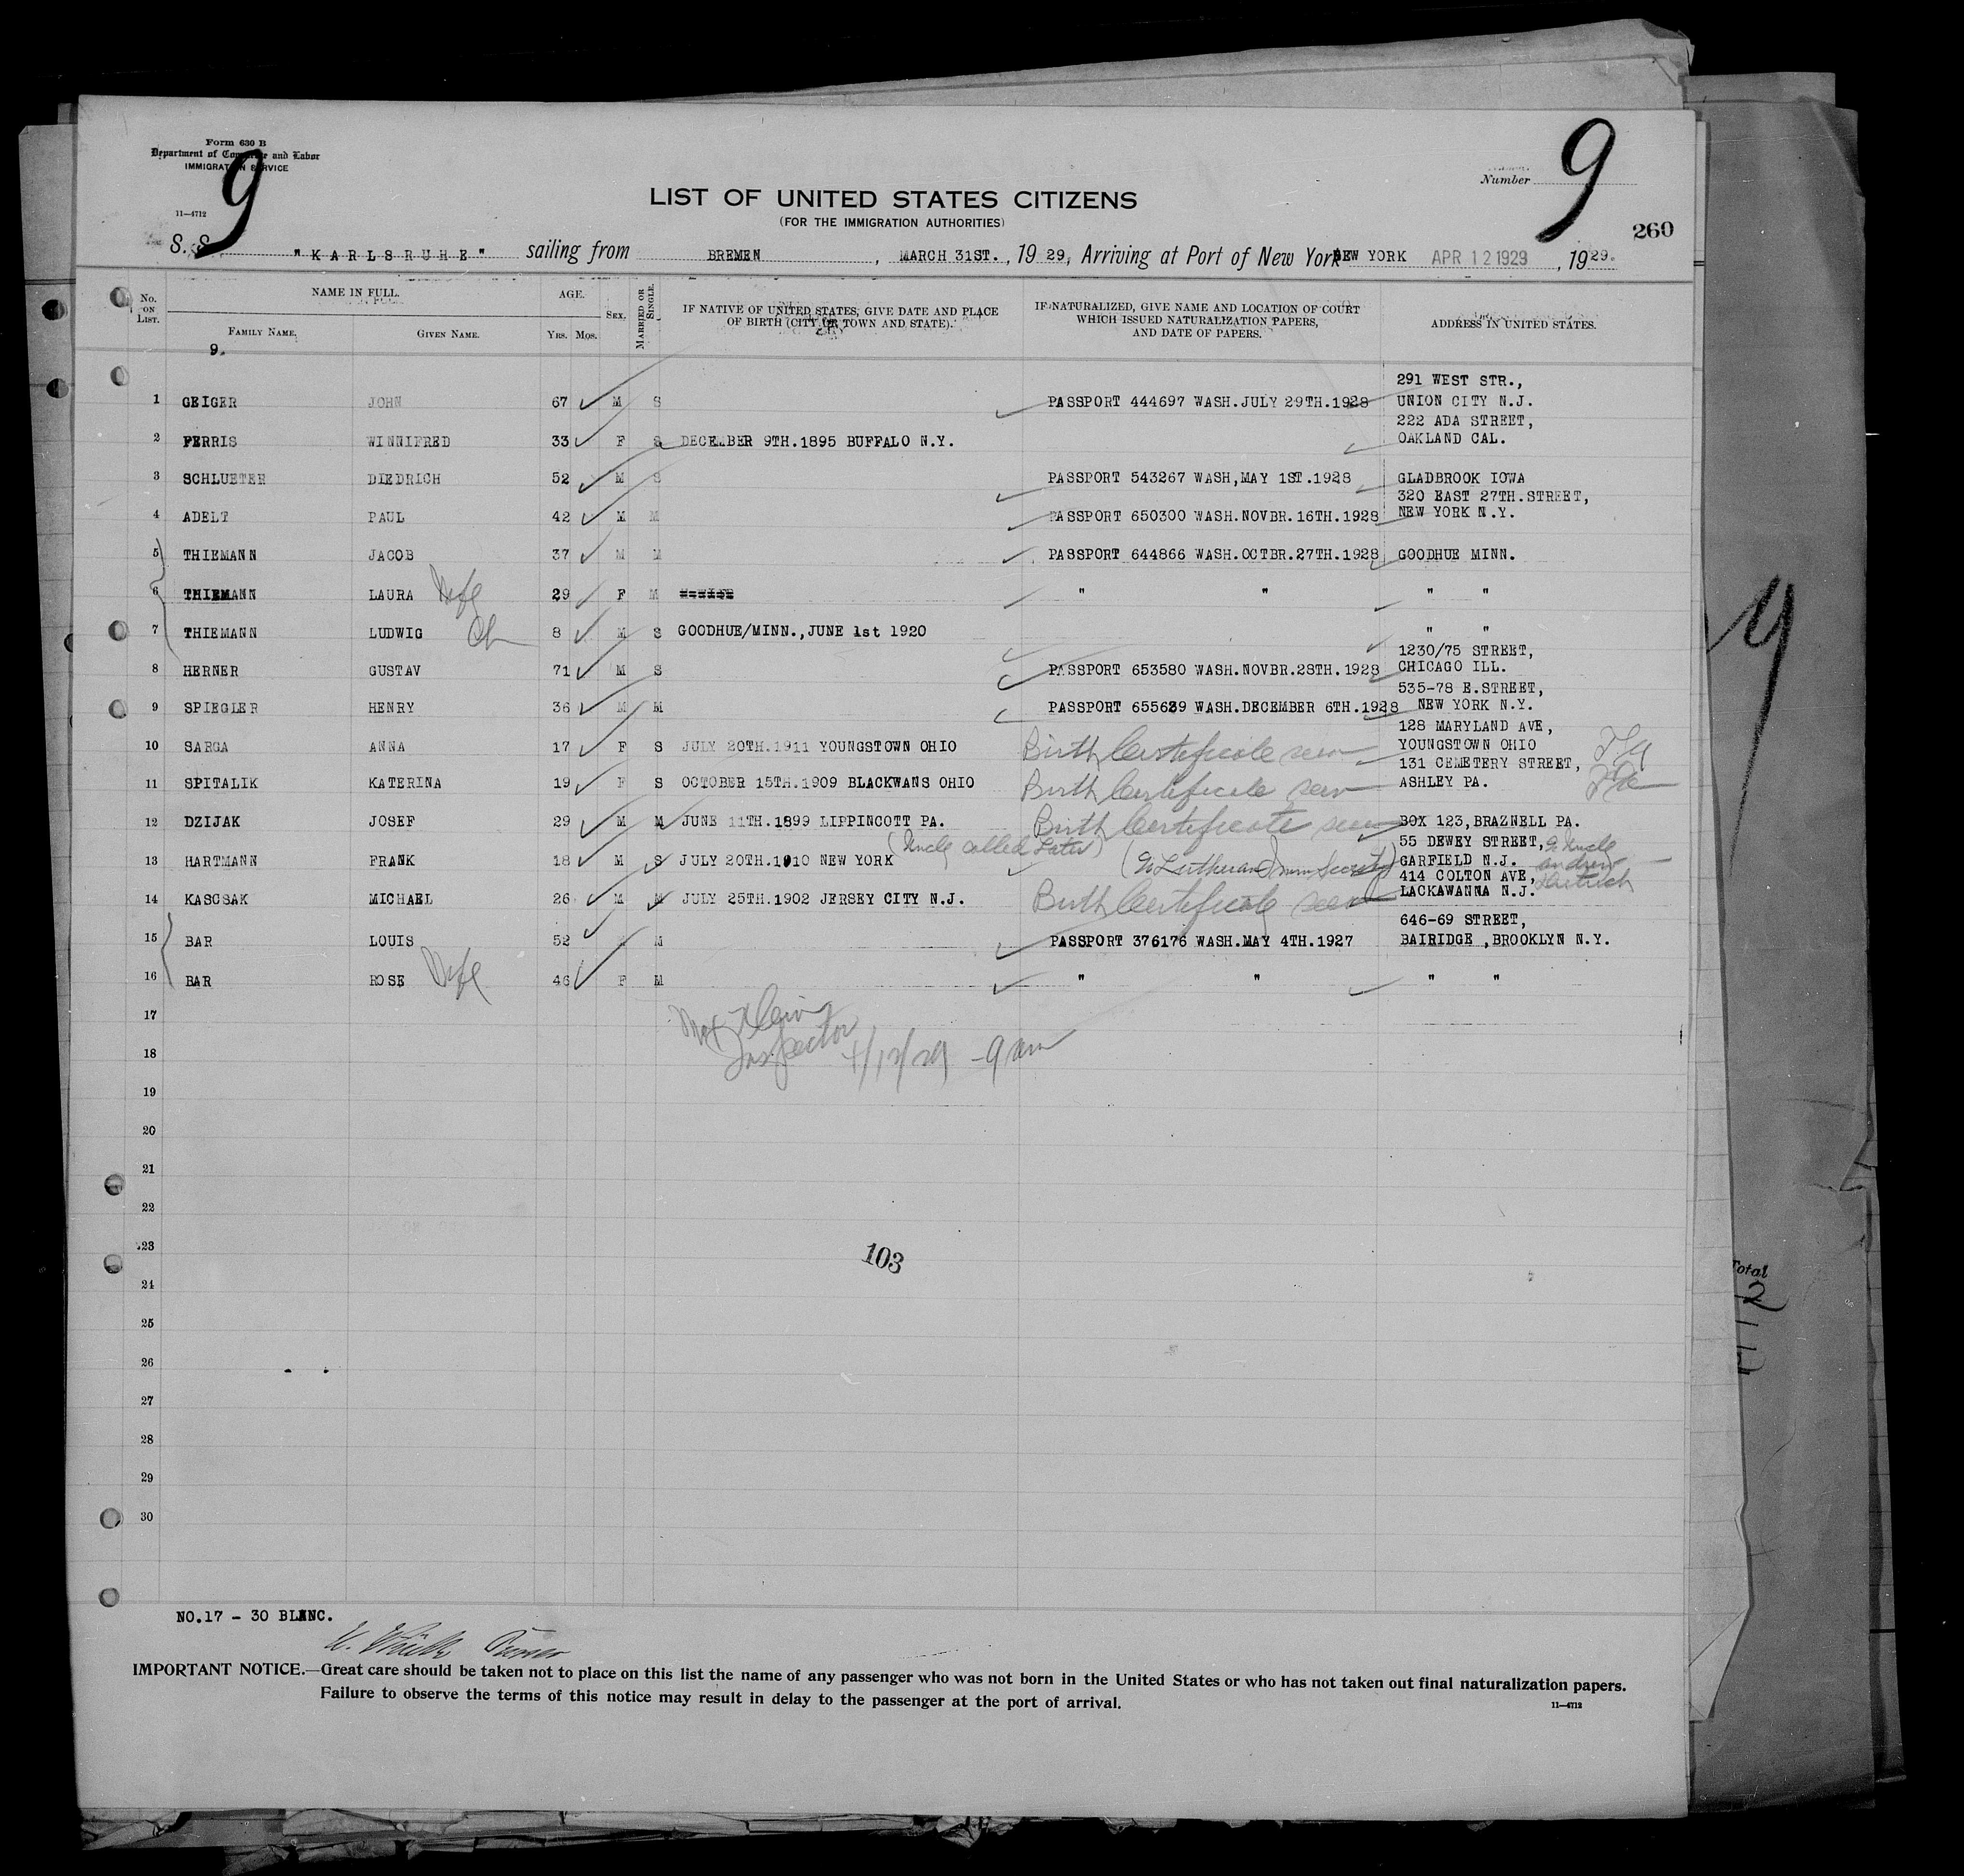 Form 630 B
Department of Commerce and Labor
IMMIGRATION SERVICE
9
9
Number
11—4712
LIST OF UNITED STATES CITIZENS
(FOR THE IMMIGRATION AUTHORITIES)
260
S.S. "KARLSRUHE" sailing from BREMEN, MARCH 31ST., 1929, Arriving at Port of New York NEW YORK APR 12 1929, 1929.
No. ON LIST. NAME IN FULL. AGE. SEX. MARRIED OR SINGLE. IF NATIVE OF UNITED STATES, GIVE DATE AND PLACE OF BIRTH (CITY OR TOWN AND STATE). IF NATURALIZED, GIVE NAME AND LOCATION OF COURT WHICH ISSUED NATURALIZATION PAPERS, AND DATE OF PAPERS. ADDRESS IN UNITED STATES.
FAMILY NAME. GIVEN NAME. YRS. MOS.
9.
291 WEST STR.,
1 GEIGER JOHN 67 M S PASSPORT 444697 WASH.JULY 29TH.1928 UNION CITY N.J.
222 ADA STREET,
2 FERRIS WINNIFRED 33 F S DECEMBER 9TH.1895 BUFFALO N.Y. OAKLAND CAL.
3 SCHLUETER DIEDRICH 52 M S PASSPORT 543267 WASH,MAY 1ST.1928 GLADBROOK IOWA
320 EAST 27TH.STREET,
4 ADELT PAUL 42 M M PASSPORT 650300 WASH.NOVBR.16TH.1928 NEW YORK N.Y.
5 THIEMANN JACOB 37 M M PASSPORT 644866 WASH.OCTBR.27TH.1928 GOODHUE MINN.
6 THIEMANN LAURA Wife 29 F M " " " "
7 THIEMANN LUDWIG Ch 8 M S GOODHUE/MINN.,JUNE 1st 1920 " "
1230/75 STREET,
8 HERNER GUSTAV 71 M S PASSPORT 653580 WASH.NOVBR.28TH.1928 CHICAGO ILL.
535-78 E.STREET,
9 SPIEGLER HENRY 36 M M PASSPORT 655629 WASH.DECEMBER 6TH.1928 NEW YORK N.Y.
128 MARYLAND AVE,
10 SARGA ANNA 17 F S JULY 20TH.1911 YOUNGSTOWN OHIO Birth Certificate seen YOUNGSTOWN OHIO
131 CEMETERY STREET,
11 SPITALIK KATERINA 19 F S OCTOBER 15TH.1909 BLACKWANS OHIO Birth Certificate seen ASHLEY PA.
12 DZIJAK JOSEF 29 M M JUNE 11TH.1899 LIPPINCOTT PA. Birth Certificate seen BOX 123,BRAZNELL PA.
(Uncle called Later) 55 DEWEY STREET, Uncle
13 HARTMANN FRANK 18 M S JULY 20TH.1910 NEW YORK (To Lutheran Imm Society) GARFIELD N.J. Andrew
414 COLTON AVE,
14 KASCSAK MICHAEL 26 M M JULY 25TH.1902 JERSEY CITY N.J. Birth Certificate seen LACKAWANNA N.J.
646-69 STREET,
15 BAR LOUIS 52 M PASSPORT 376176 WASH.MAY 4TH.1927 BAIRIDGE ,BROOKLYN N.Y.
16 BAR ROSE Wife 46 F M " " " "
17
Max Klein
Inspector
4/12/29 - 9 am
18
19
20
21
22
23
103
24
25
26
27
28
29
30
NO.17 - 30 BLANC.
IMPORTANT NOTICE.—Great care should be taken not to place on this list the name of any passenger who was not born in the United States or who has not taken out final naturalization papers.
Failure to observe the terms of this notice may result in delay to the passenger at the port of arrival.
11—4712
Total